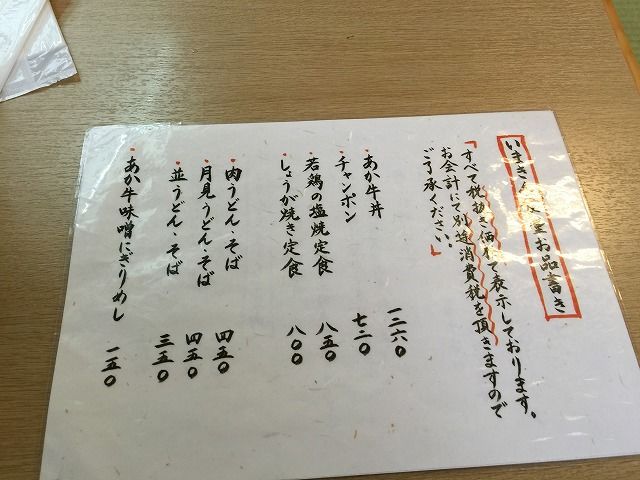 いまきん食堂お品書き
「すべて税抜き価格で表示しております。
お会計にて別途消費税を頂きますので
ご了承ください。」
・あか牛丼 一二六〇
・チャンポン 七二〇
・若鶏の塩焼定食 八五〇
・しょうが焼き定食 八〇〇
・肉うどん・そば 四五〇
・月見うどん・そば 四五〇
・並うどん・そば 三五〇
・あか牛味噌にぎりめし 一五〇